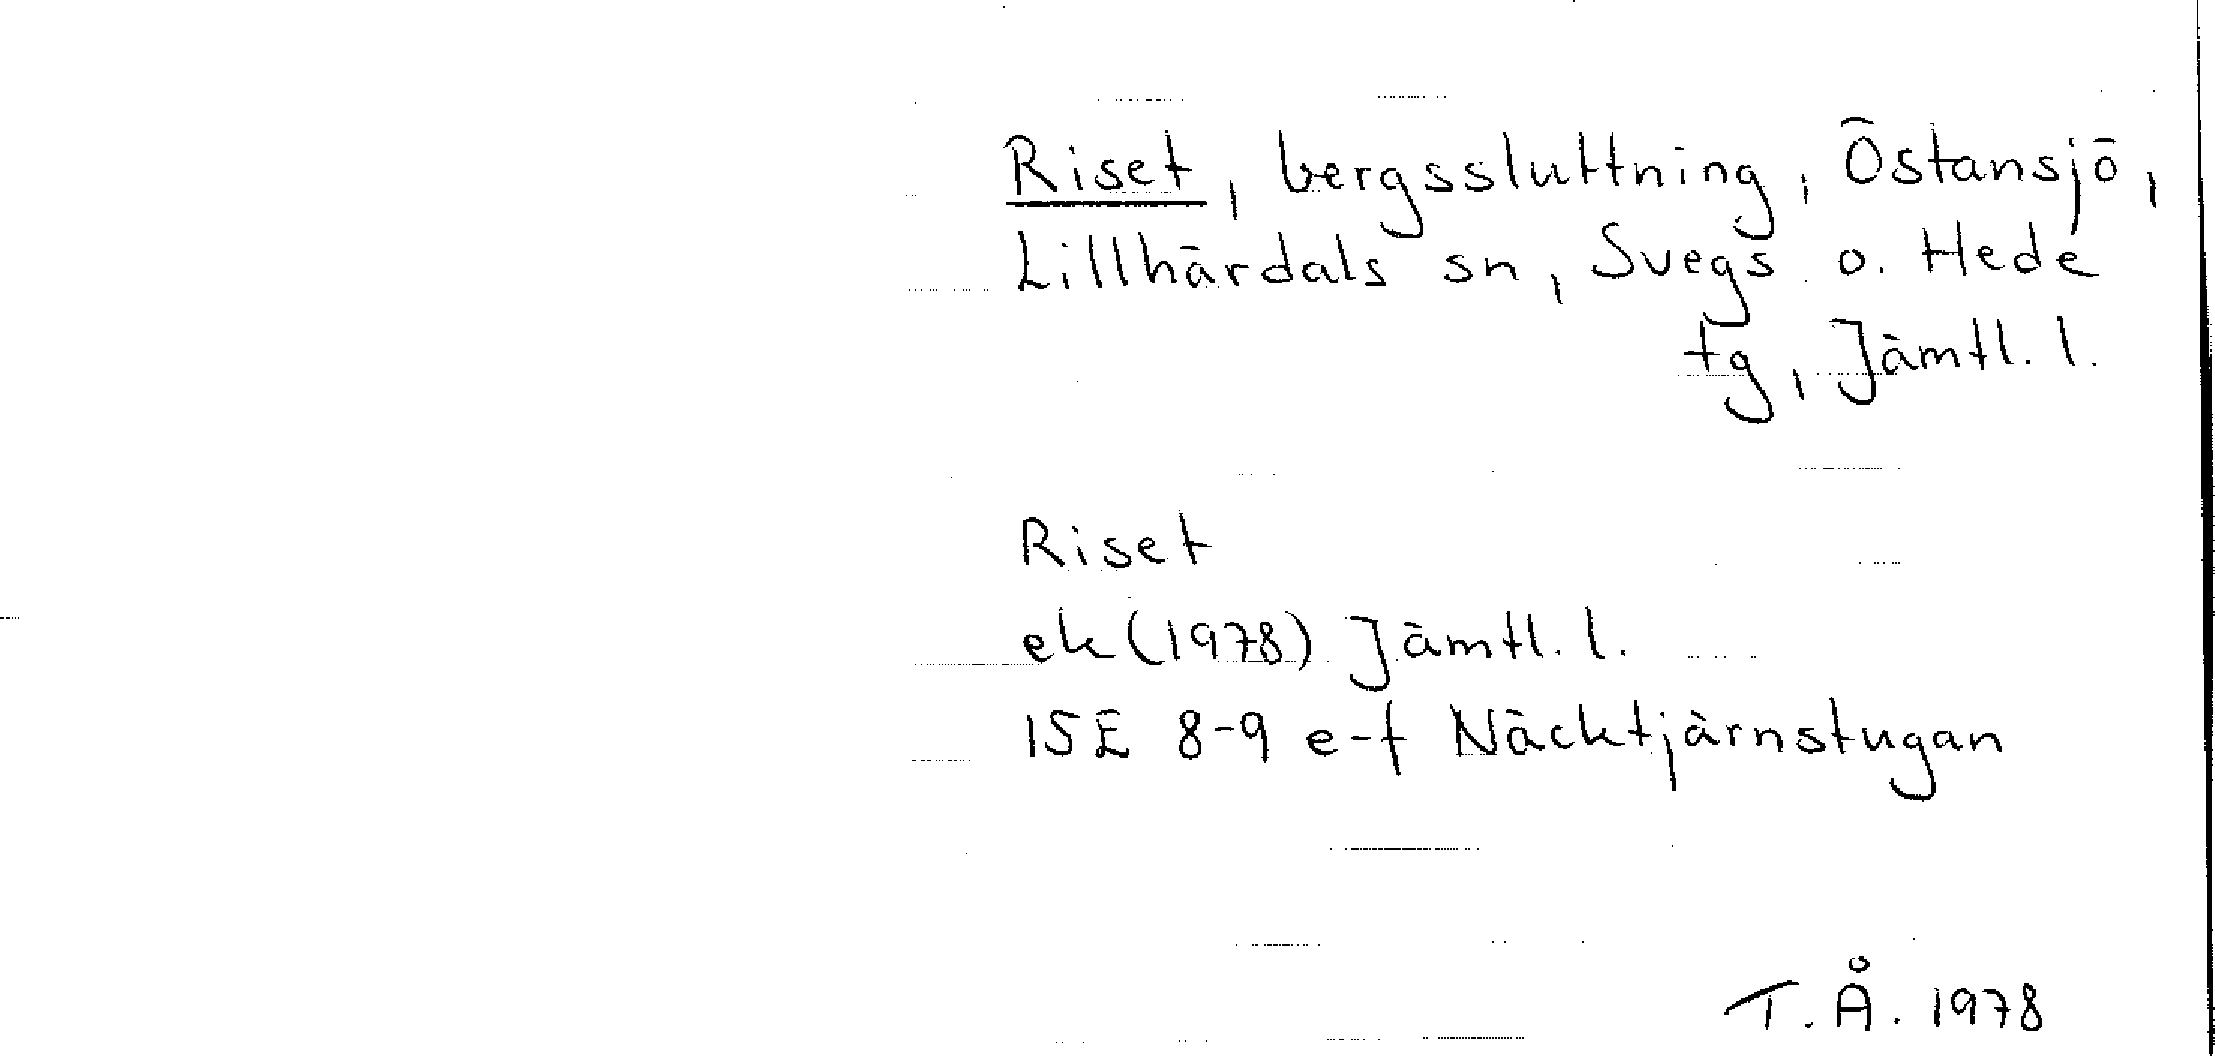 Riset, bergssluttning, Östansjö,
Lillhärdals sn, Svegs o. Hede
tg, Jämtl. l.
Riset
ek (1978) Jämtl. l.
15E 8-9 e-f Näcktjärnstugan
T.Å. 1978